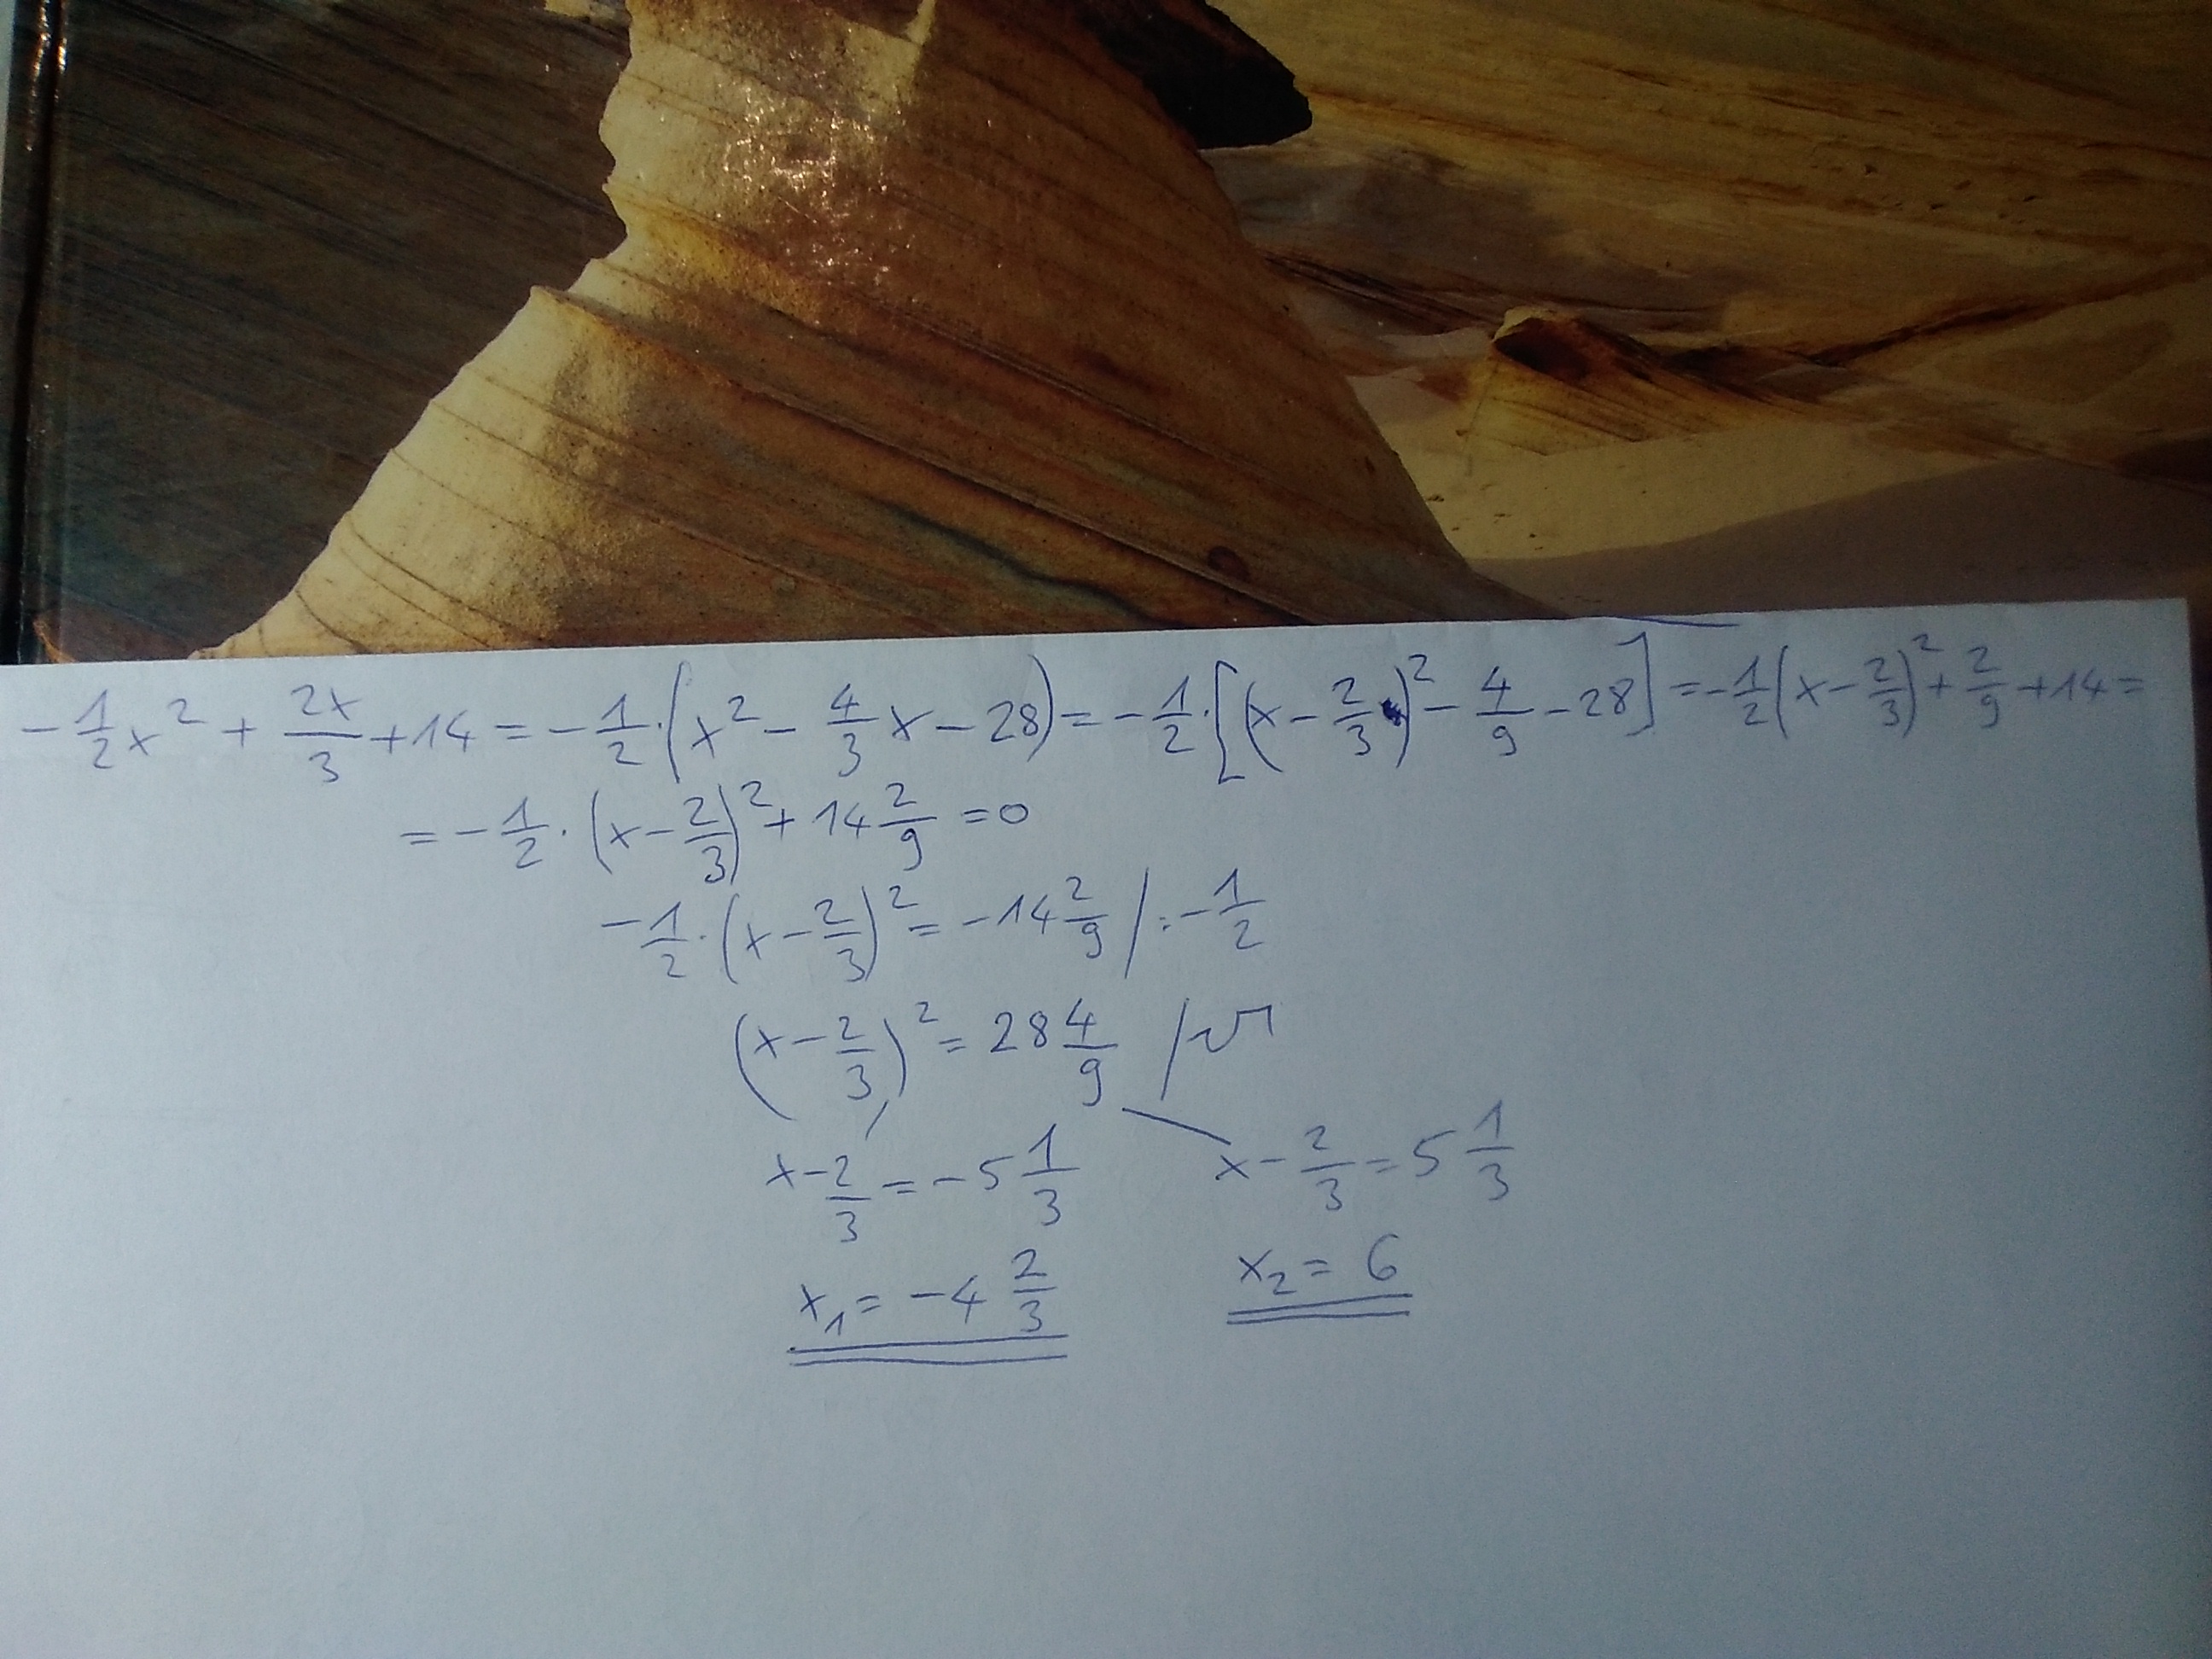 -1/2 x² + 2x/3 + 14 = -1/2 · (x² - 4/3 x - 28) = -1/2 · [(x - 2/3)² - 4/9 - 28] = -1/2 (x - 2/3)² + 2/9 + 14 =
= -1/2 · (x - 2/3)² + 14 2/9 = 0
-1/2 · (x - 2/3)² = -14 2/9 / : -1/2
(x - 2/3)² = 28 4/9 / √
x - 2/3 = -5 1/3 x - 2/3 = 5 1/3
x₁ = -4 2/3 x₂ = 6